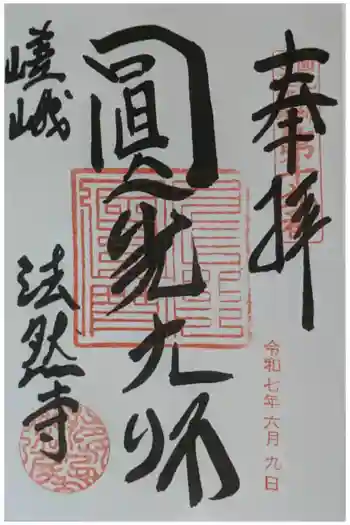 奉拝
令和七年六月九日
圓光大師
嵯峨
法然寺